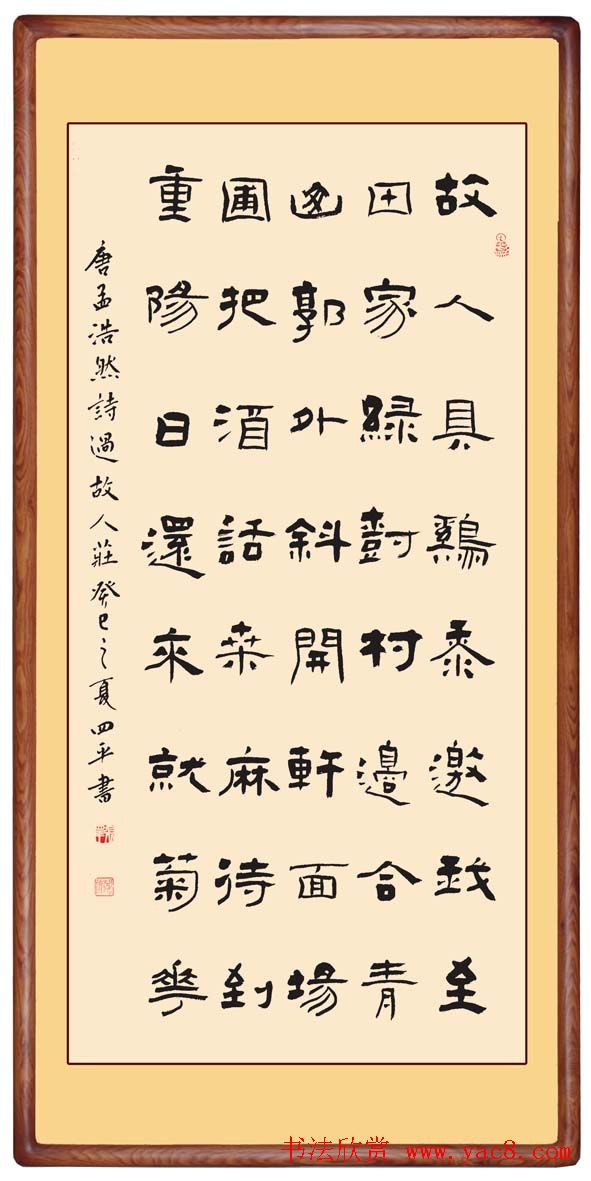 故人具鷄黍邀我至
田家綠尌村邊合青
山郭外斜開軒面場
圃把酒話桑麻待到
重陽日還來就菊華
唐孟浩然詩過故人莊癸巳之夏四平書
书法欣赏 www.yac8.com